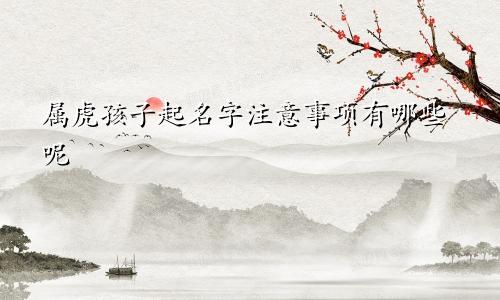 属虎孩子起名字注意事项有哪些
呢